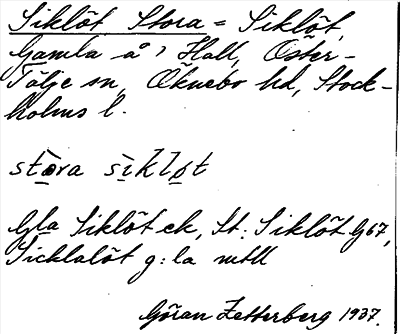 Siklöt Stora = Siklöt,
Gamla å, Hall, Öster-
Tälje sn, Öknebo hd, Stock-
holms l.
stòra sìkløt
Gla Siklöt ek, St: Siklöt G67,
Sicklalöt g:la mtll
Göran Zetterberg 1937.